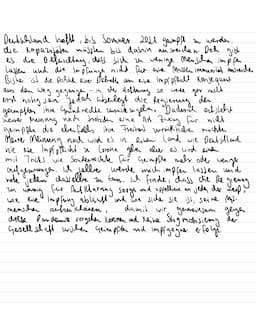 Deutschland hofft, bis Sommer 2021 geimpft zu werden,
die Kapazitäten müssten bis dahin ausreichen. Doch gibt
es die Befürchtung, dass sich zu wenige Menschen impfen
lassen und die Impfungen nicht für eine ausreichen.
Bisher ist die Politik eine Debatte um eine Impfpflicht konsequent
aus dem Weg gegangen - in der Hoffnung sie wäre gar nicht
erst nötig sein. Jedoch überlegt die Regierung den
geimpften ihre Grundrechte wiederzugeben. Dadurch entsteht
meiner Meinung nach trotzdem eine Art Zwang für nicht
geimpfte die ebenfalls ihre Freiheit zurückhaben möchten.
Meiner Meinung nach wird es in einem Land wie Deutschland
nie eine Impfpflicht zu Corona geben, aber es wird einen
mit Tricks wie Sonderrechte für Geimpfte mehr oder weniger
aufgezwungen. Ich selber werde mich impfen lassen und
rate jedem dasselbe zu tun. Ich finde, dass die Regierung
zu wenig für Aufklärung sorgt und
wie eine Impfung abläuft und wie sicher sie ist, seine
, damit wir gemeinsam gegen
diese Pandemie vorgehen können und keine Stigmatisierung der
Gesellschaft zwischen Geimpften und Impfgegner erfolgt.